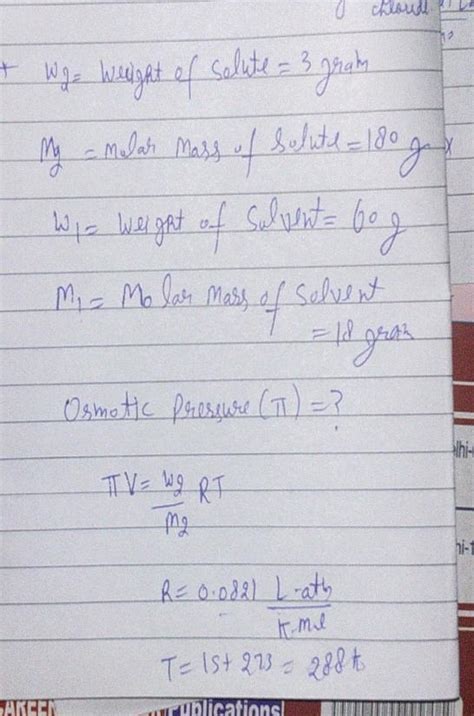 chloride
W2 = Weight of Solute = 3 gram
M2 = Molar Mass of Solute = 180 g
W1 = Weight of Solvent = 60 g
M1 = Molar Mass of Solvent
= 18 gram
Osmotic Pressure (π) = ?
πV = W2/M2 RT
R = 0.0821 L-atm/K.mol
T = 15 + 273 = 288 K
CAREER Publications